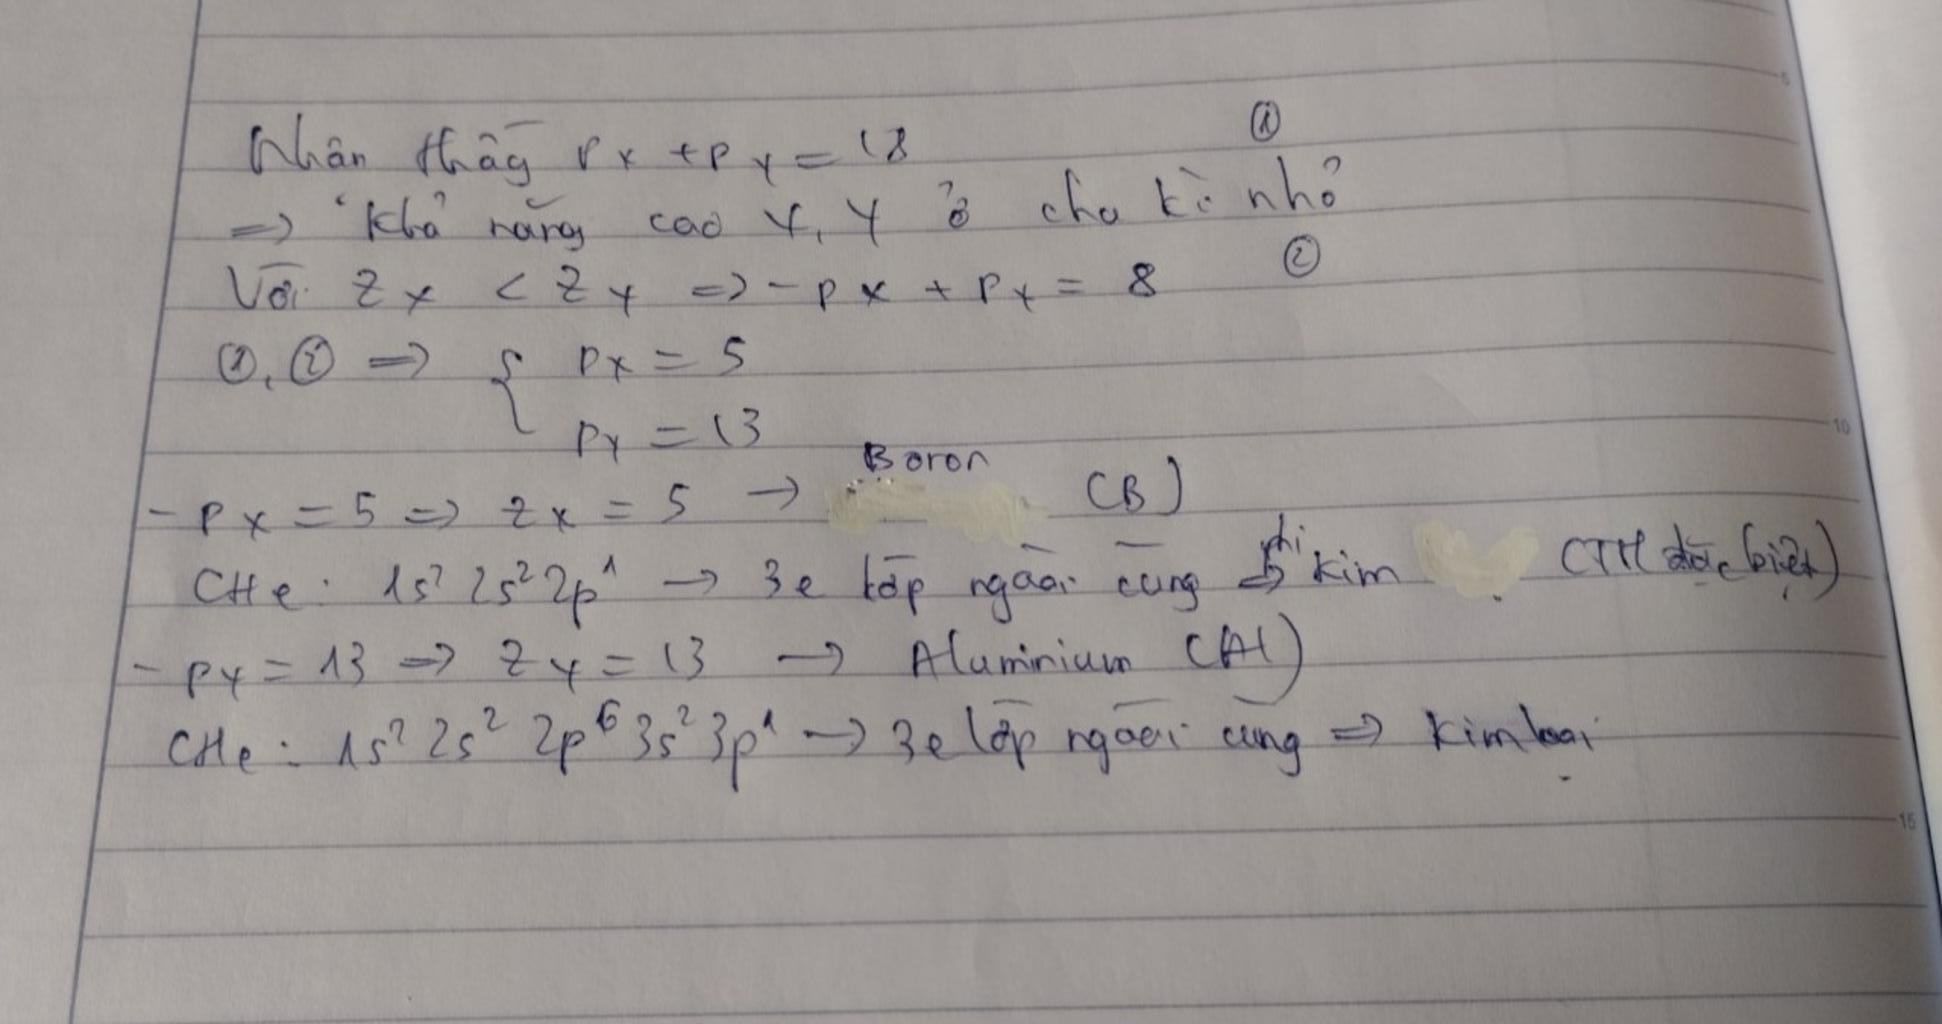 Nhận thấy Px + Py = 18 ①
=> Khả năng cao X, Y ở chu kì nhỏ
Với Zx < Zy => - Px + Py = 8 ②
①, ② => { Px = 5
Py = 13
- Px = 5 => Zx = 5 -> Boron (B)
CHe: 1s² 2s² 2p¹ -> 3e lớp ngoài cùng => phi kim (TH đặc biệt)
- Py = 13 => Zy = 13 -> Aluminium (Al)
CHe: 1s² 2s² 2p⁶ 3s² 3p¹ -> 3e lớp ngoài cùng => kim loại
5
10
15